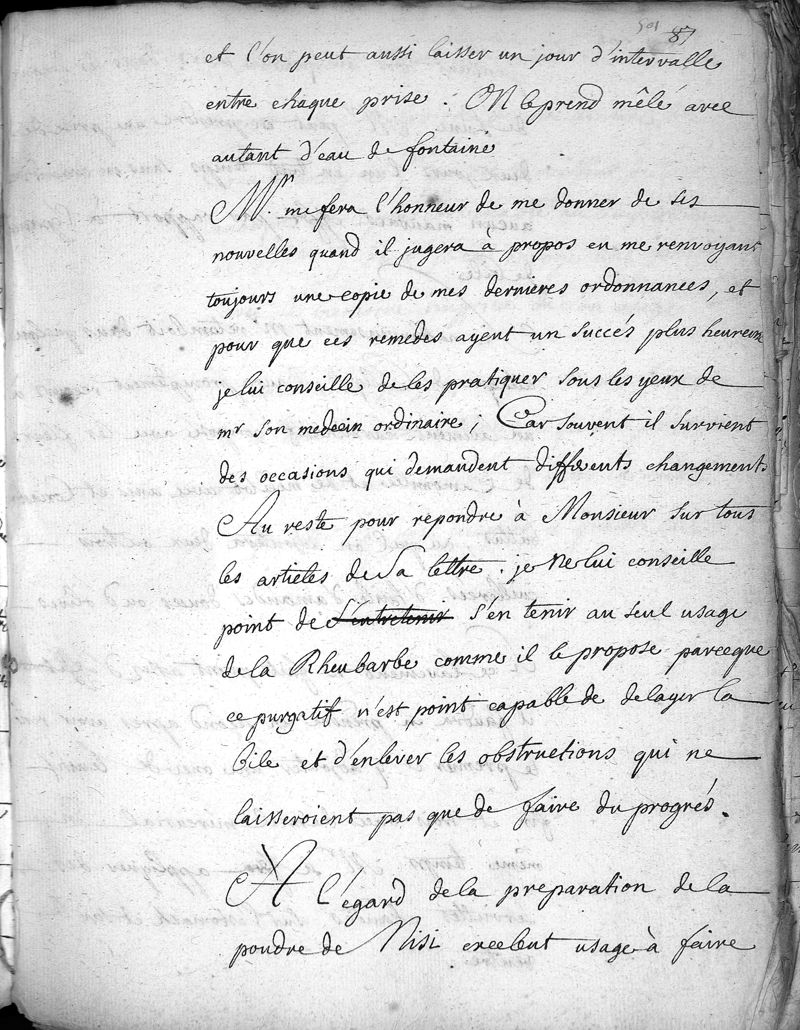 87
et l'on peut aussi laisser un jour d'intervalle
entre chaque prise. On le prend mêlé avec
autant d'eau de fontaine
Mr. me fera l'honneur de me donner de ses
nouvelles quand il jugera à propos en me renvoyant
toujours une copie de mes dernieres ordonnances, et
pour que ces remedes ayent un succés plus heureux
je lui conseille de les pratiquer sous les yeux de
mr son medecin ordinaire; Car souvent il survient
des occasions qui demandent differents changements
Au reste pour repondre à Monsieur sur tous
les articles de Sa lettre. je ne lui conseille
point de s'entretenir s'en tenir au seul usage
de la Rheubarbe comme il le propose parceque
ce purgatif n'est point capable de delayer la
bile et d'enlever les obstructions qui ne
laisseroient pas que de faire du progrés.
A l'égard de la preparation de la
poudre de Nisi excelent usage à faire